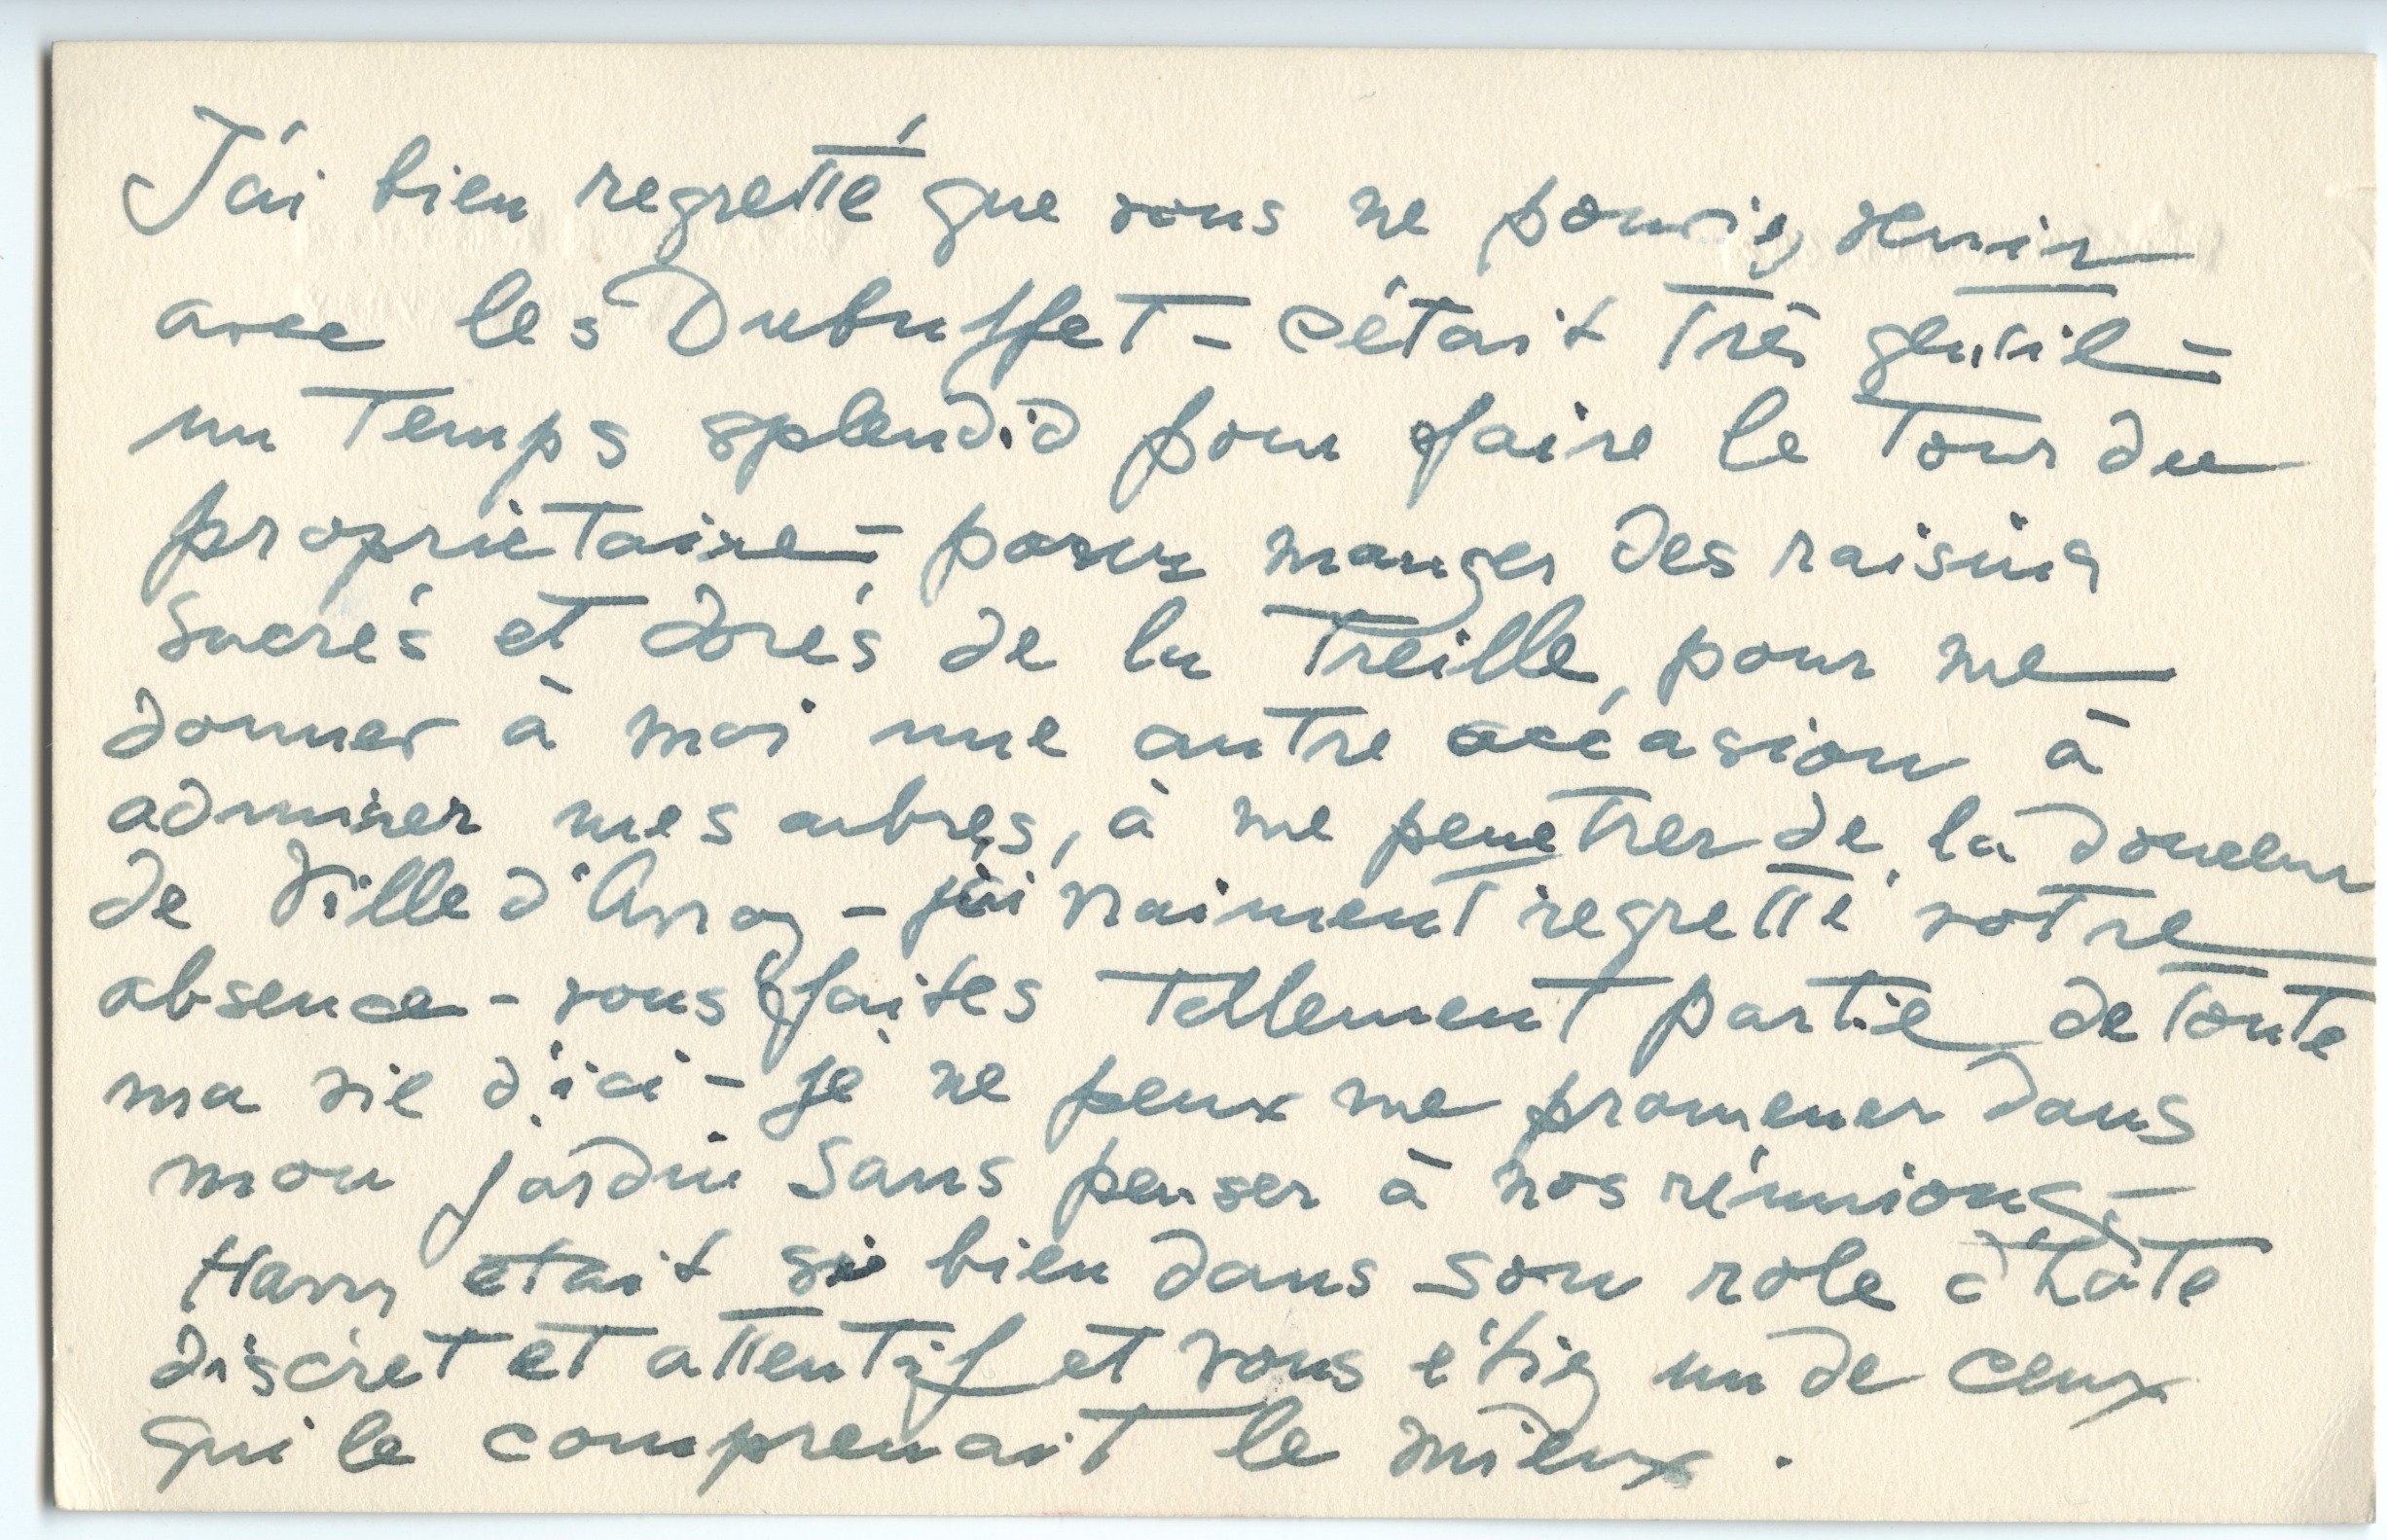 J'ai bien regretté que vous ne pouviez venir
avec les Dubuffet - c'était très gentil -
un temps splendid pour faire le tour du
propriétaire - pour manger des raisins
sucrés et dorés de la treille, pour me
donner à moi une autre occasion à
admirer mes arbres, à me penetrer de la douceur
de Ville d'Avray - j'ai vraiment regretté votre
absence - vous faites tellement partie de toute
ma vie d'ici - je ne peux me promener dans
mon jardin sans penser à nos réunions -
Harry etait si bien dans son role d'hôte
discret et attentif et vous étiez un de ceux
qui le comprenait le mieux.